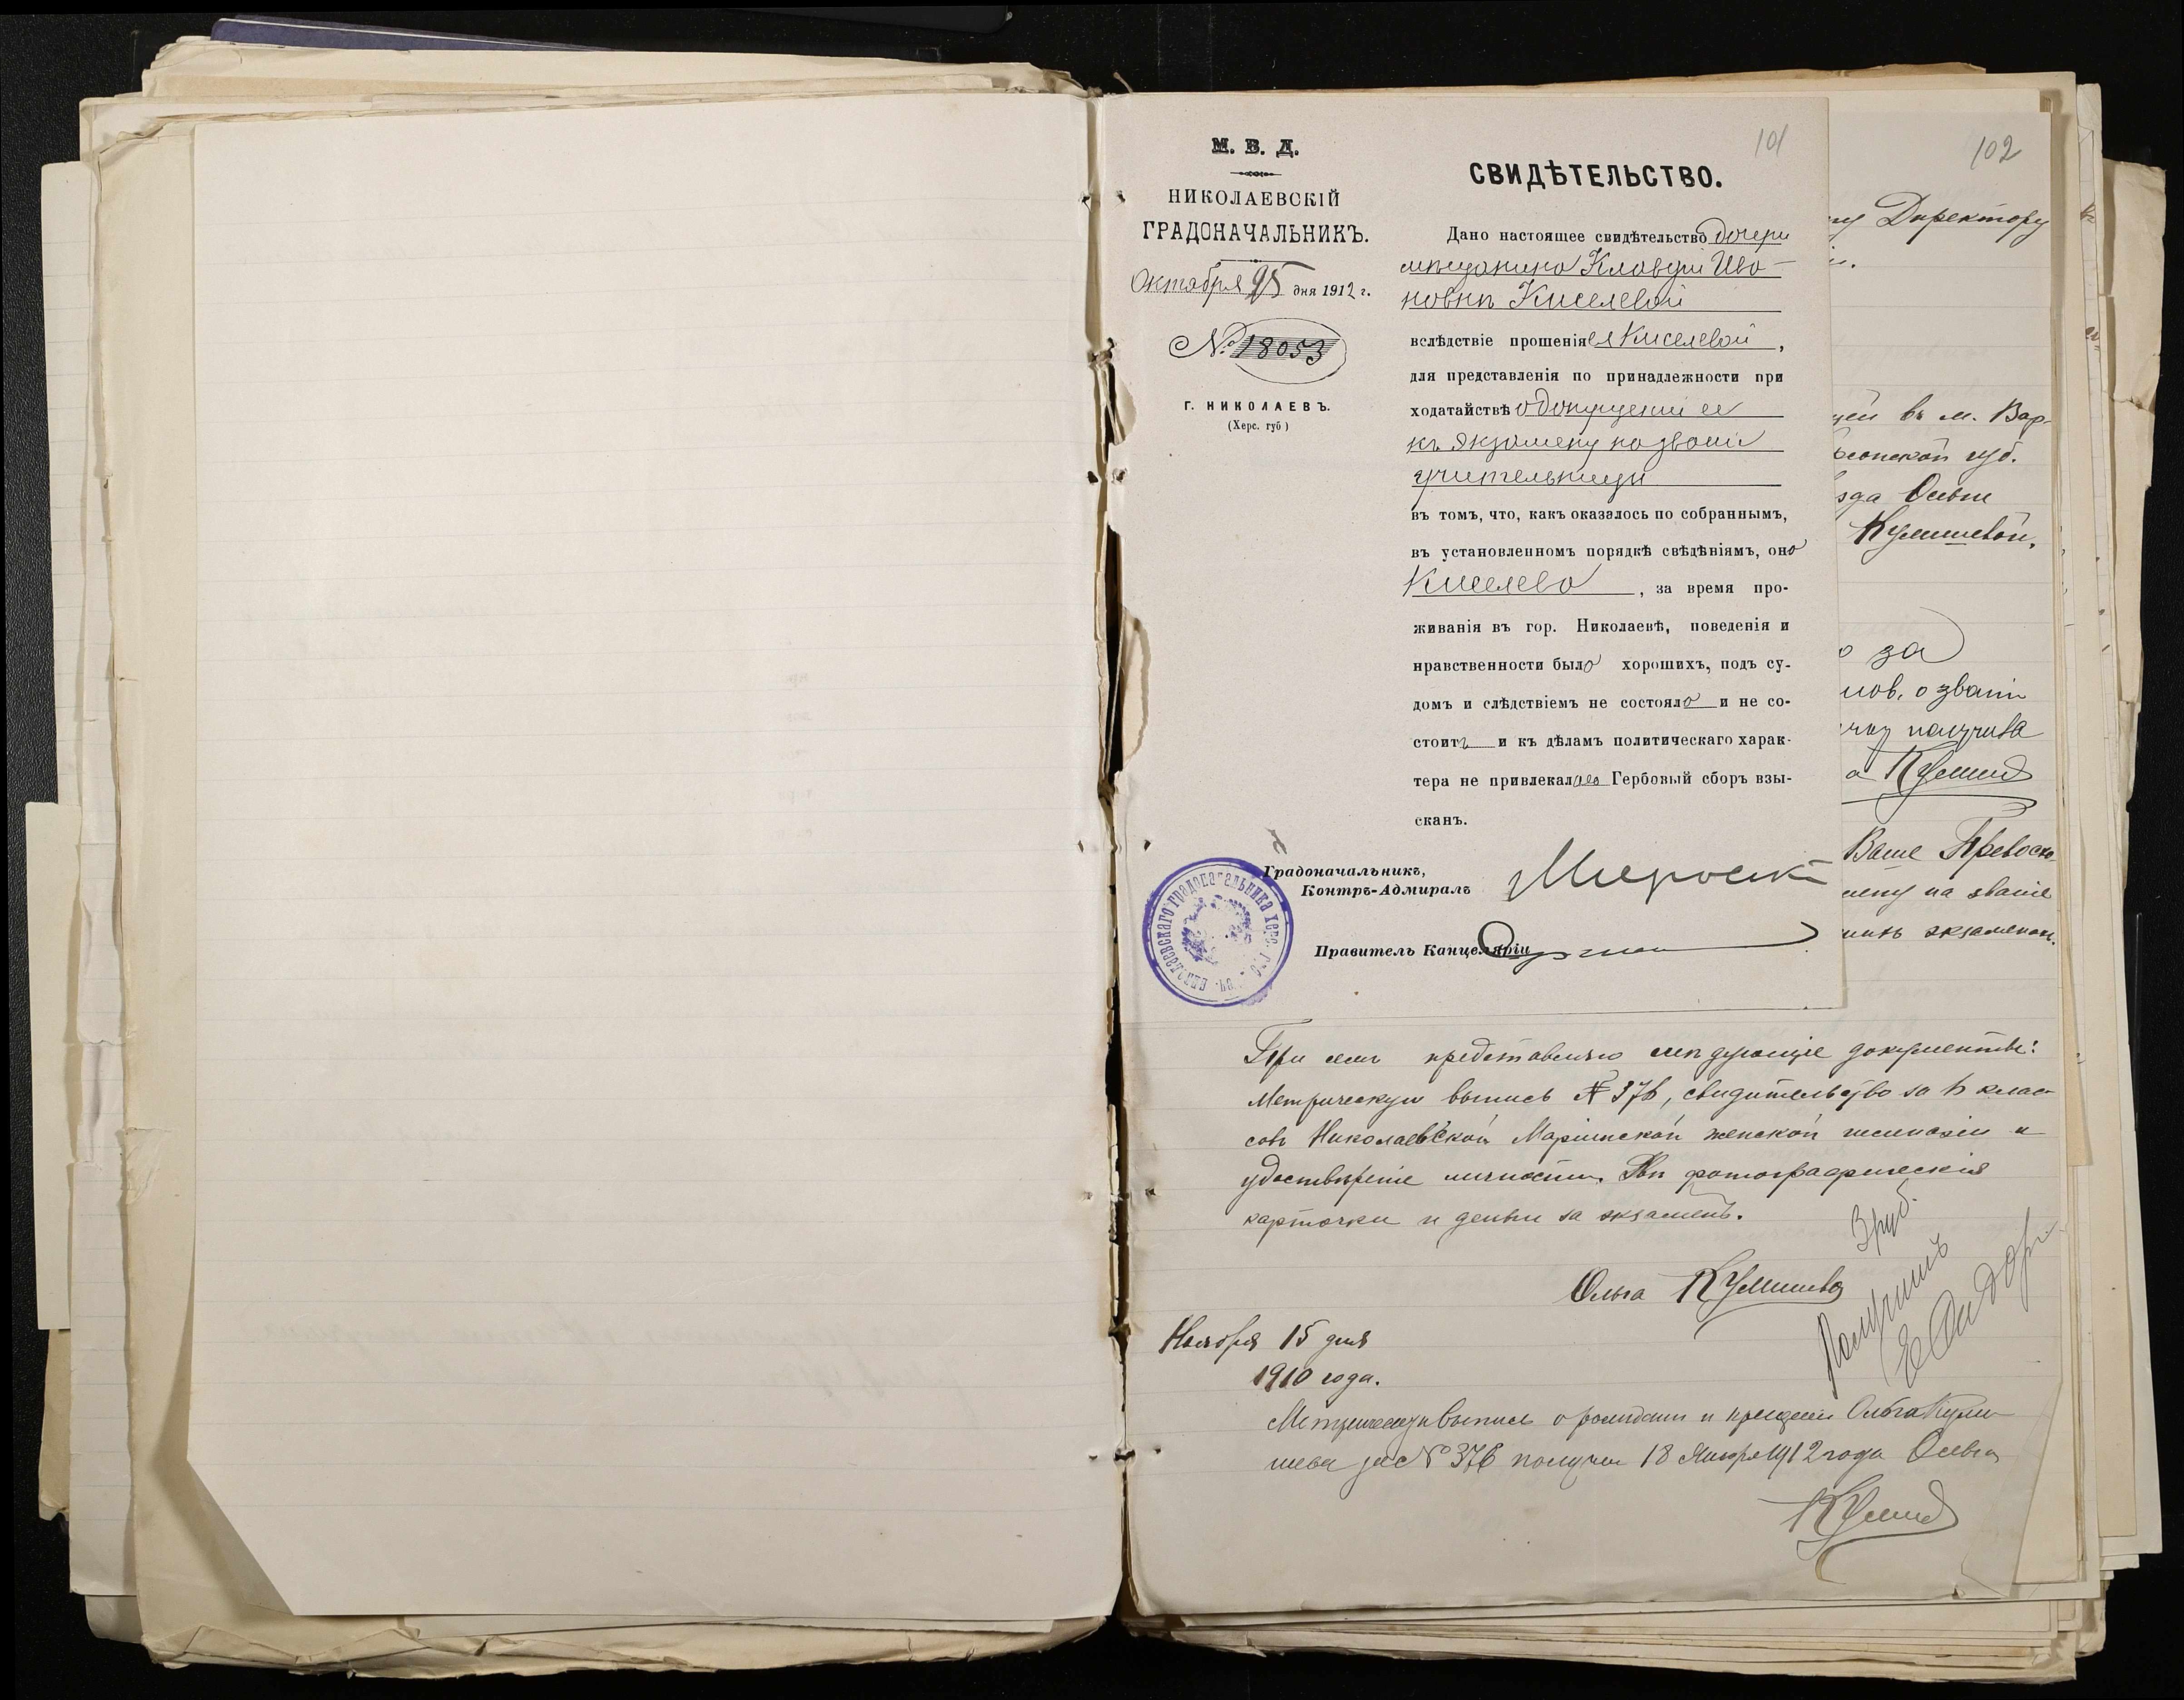 101
М. В. Д.
НИКОЛАЕВСКІЙ
ГРАДОНАЧАЛЬНИКЪ.
Октября 25 дня 1912 г.
№ 18053
Г. НИКОЛАЕВЪ.
(Херс. губ)
СВИДѢТЕЛЬСТВО.
Дано настоящее свидѣтельство дочери
мѣщанина Клавдіи Ива-
новнѣ Киселевой
вслѣдствіе прошенія ея Киселевой,
для представленія по принадлежности при
ходатайствѣ о допущеніи ее
къ экзамену на званіе
учительницы
въ томъ, что, какъ оказалось по собраннымъ,
въ установленномъ порядкѣ свѣдѣніямъ, она
Киселева, за время про-
живанія въ гор. Николаевѣ, поведенія и
нравственности была хорошихъ, подъ су-
домъ и слѣдствіемъ не состояла и не со-
стоитъ и къ дѣламъ политическаго харак-
тера не привлекалась Гербовый сборъ взы-
сканъ.
Градоначальникъ,
Контръ-Адмиралъ
Правитель Канцеляріи
102
Директору
въ м. Вар-
губ.
Ольги
Кулишевой.
за
о званіи
получила
Ваше Превосхо-
на званіе
экзаменъ.
При семъ представляю слѣдующіе документы:
Метрическую выпись № 376, свидѣтельство за 6 клас-
совъ Николаевской Маріинской женской гимназіи и
удостовѣреніе личности. Двѣ фотографическія
карточки и деньги за экзаменъ.
3 руб.
Получилъ
Ольга Кулишева
Ноября 15 дня
1910 года.
Метрическую выпись о рожденіи и крещеніи Ольга Кули-
шева за № 376 получила 18 Января 1912 года Ольга